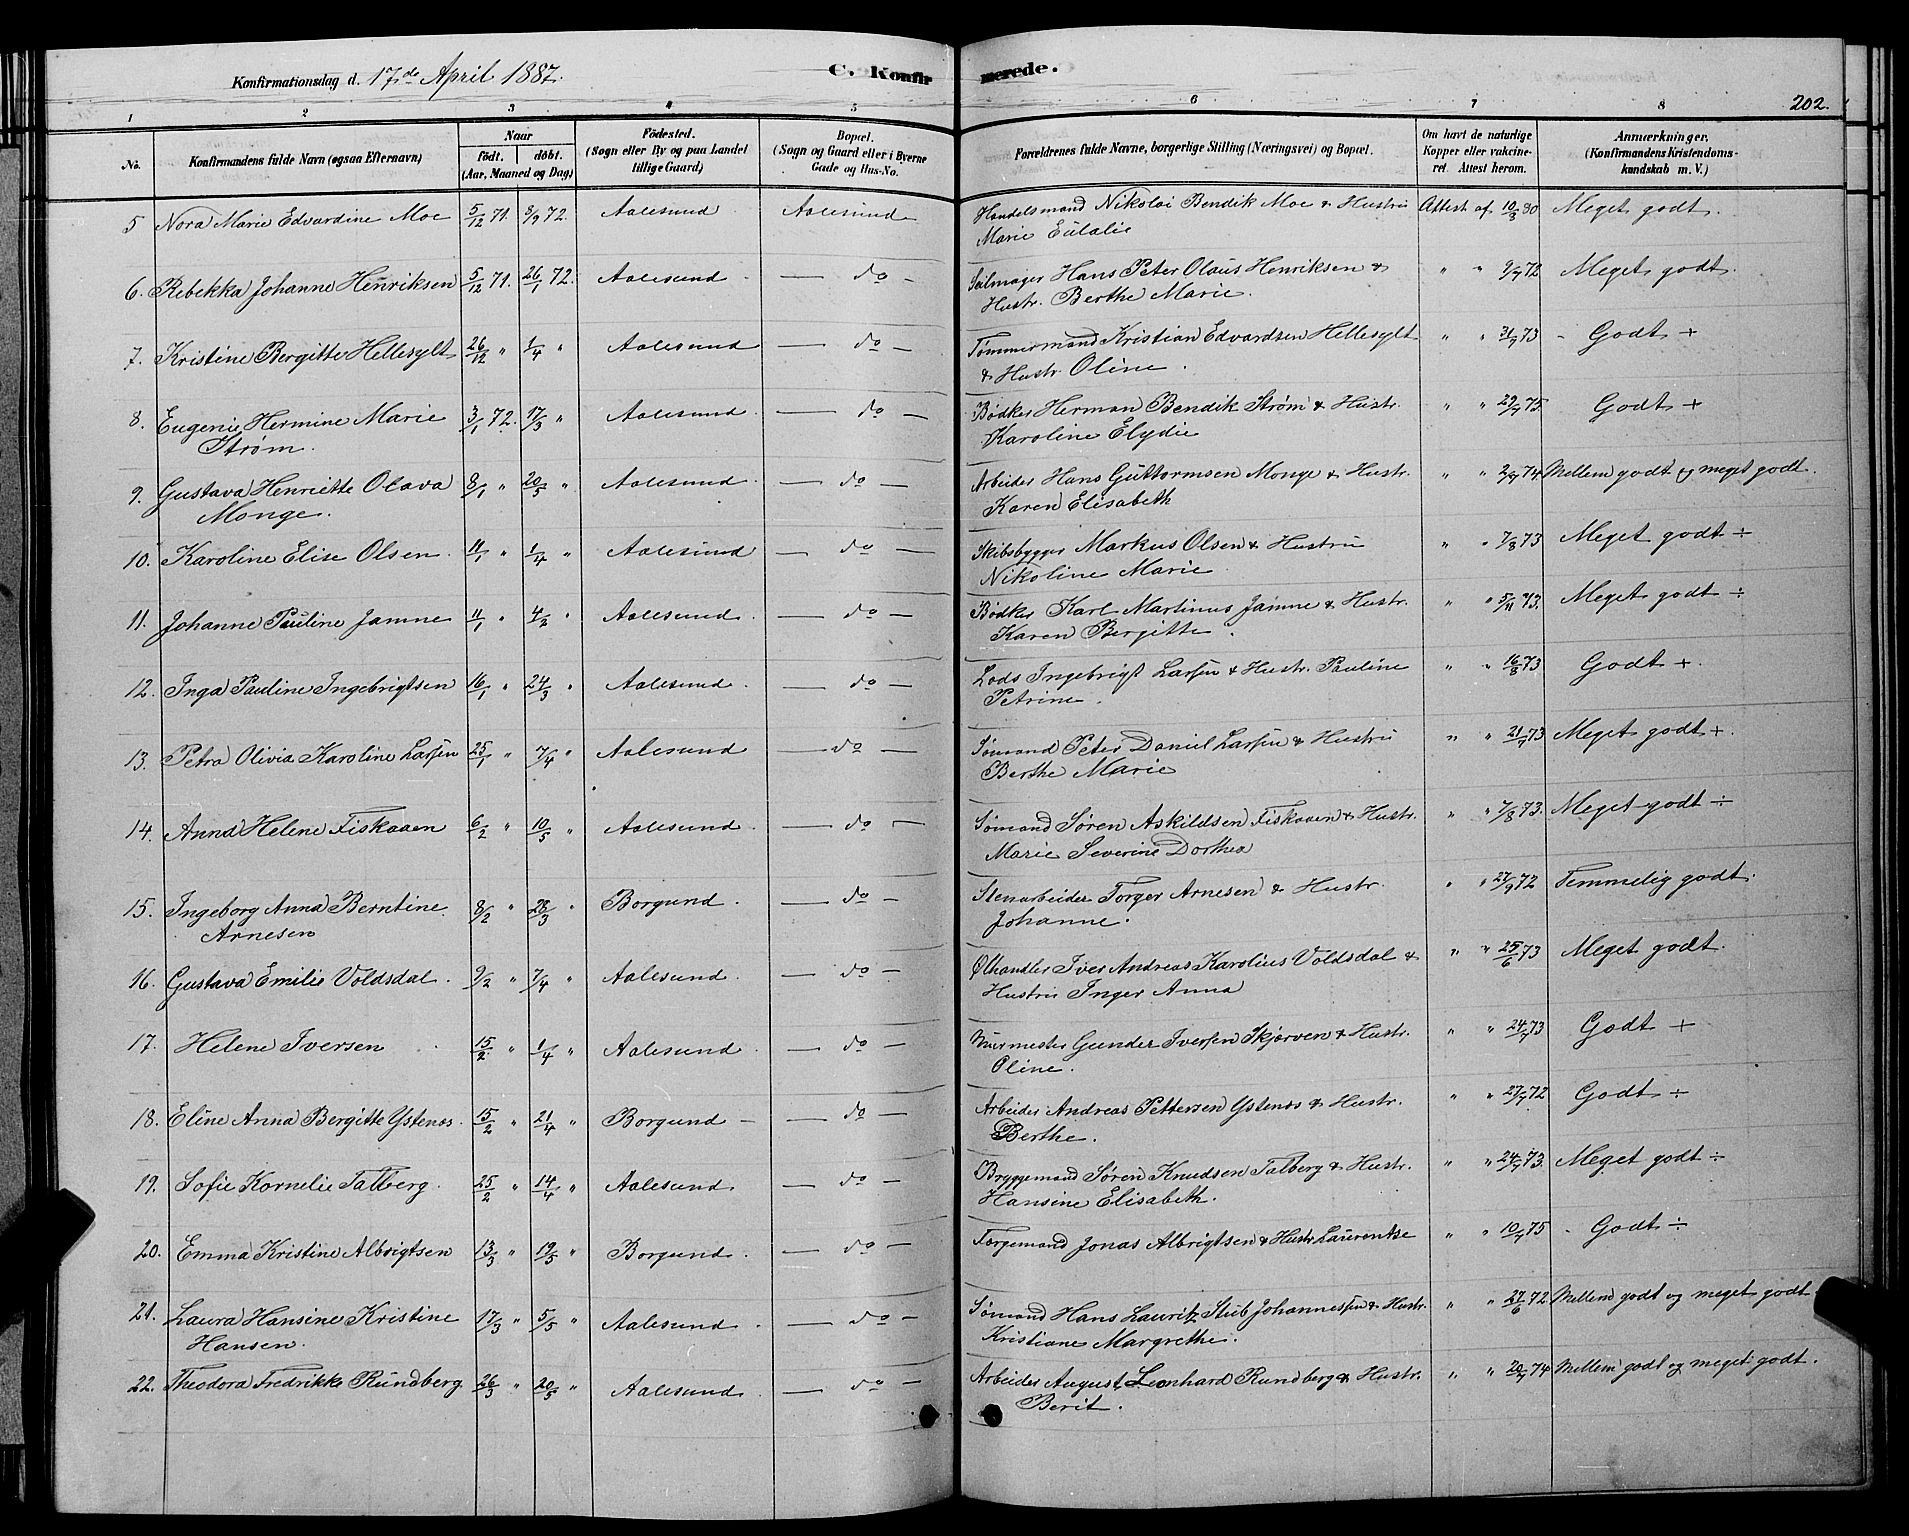 Konfirmationsdag d. 17de April 1887.
C. Konfirmerede.
202.
1 2 3 4 5 6 7 8
No. Konfirmandens fulde Navn (ogsaa Efternavn) Naar født. døbt. (Aar, Maaned og Dag) Fødested. (Sogn eller By og paa Landet tillige Gaard) Bopæl. (Sogn og Gaard eller i Byerne Gade og Hus-No. Forældrenes fulde Navne, borgerlige Stilling (Næringsvei) og Bopæl. Om havt de naturlige Kopper eller vakcineret Attest herom. Anmærkninger. (Konfirmandens Kristendomskundskab m. V.)
5 Nora Marie Edvardine Moe 5/12 71. 3/9 72. Aalesund Aalesund Handelsmand Nikolai Bendik Moe & Hustru Attest af 10/3 80 Meget godt.
Marie Eulalie
6. Rebekka Johanne Henriksen 5/12 71. 26/1 72. Aalesund - — do — Seilmager Hans Peter Olaus Henriksen & " " 9/7 72 Meget godt.
Hustr. Berthe Marie.
7. Kristine Bergitte Hellesylt 26/12 " 1/4 " Aalesund — do — Tømmermand Kristian Edvardsen Hellesylt " " 31/7 73 - Godt +
& Hustr. Oline.
8. Eugenie Hermine Marie 3/1 72. 17/3 " Aalesund. — do — Bødker Herman Bendik Strøm & Hustr. " " 29/7 75. Godt +
Strøm. Karoline Elydie
9. Gustava Henriette Olava 8/1 " 20/5 " Aalesund. — do — Arbeider Hans Guttormsen Monge & Hustr. " " 74. Mellem godt og meget godt.
Monge. Karen Elisabeth
10. Karoline Elise Olsen. 11/1 " 1/4 " Aalesund — do — Skibsbygger Markus Olsen & Hustru " " 7/8 73 Meget godt ÷
Nikoline Marie
11. Johanne Pauline Jamne 11/1 " 4/2 " Aalesund. — do — Bødker Karl Martinus Jamne & Hustr. " " 5/11 73. Meget godt ÷
Karen Bergitte.
12. Inga Pauline Ingebrigtsen 16/1 " 24/3 " Aalesund. — do — Lods Ingebrigt Larsen & Hustr. Pauline " " 16/8 73 Godt +.
Petrine.
13. Petra Olivia Karoline Larsen 25/1 " 7/4 " Aalesund — do — Sømand Peter Daniel Larsen & Hustru " " 21/7 73 Meget godt +.
Berthe Marie
14. Anna Helene Fiskaaen 6/2 " 10/5 " Aalesund. — do — Sømand Søren Askildsen Fiskaaen & Hustr. " " 7/8 73. Meget godt ÷
Marie Severine Dorthea
15. Ingeborg Anna Berntine 8/2 " 28/3 " Borgund. — do — Stenarbeider Torger Arnesen & Hustr. " " 27/9 72 Temmelig godt.
Arnesen Johanne.
16. Gustava Emilie Voldsdal. 9/2 " 7/4 " Aalesund. — do — Ølhandler Iver Andreas Karolius Voldsdal & " " 25/6 73 Meget godt.
Hustru Inger Anna
17. Helene Iversen 15/2 " 1/4 " Aalesund. — do — Murmester Gunder Iversen Skjerven & Hustr. " " 24/7 73 Godt +
Oline.
18. Eline Anna Bergitte Ystenes. 15/2 " 21/4 " Borgund — — do — Arbeider Andreas Pettersen Ystenes & Hustr. " " 27/7 72 Godt ÷
Berthe.
19. Sofie Kornelie Talberg. 25/2 " 14/4 " Aalesund. — do — Bryggemand Søren Knudsen Talberg & Hustr. " " 24/7 73. Meget godt ÷
Hansine Elisabeth.
20. Emma Kristine Albrigtsen 13/3 " 19/5 " Borgund. — do — Færgemand Jonas Albrigtsen & Hustr. Laurentse " " 10/7 75 - Godt ÷
21. Laura Hansine Kristine 17/3 " 5/5 " Aalesund. — do — Sømand Hans Lauritz Stub Johannessen & Hustr. " " 27/6 72 Mellem godt og meget godt
Hansen. Kristiane Margrethe.
22. Theodora Fredrikke Rundberg 26/3 " 20/5 " Aalesund. — do — Arbeider August Leonhard Rundberg & Hustr. " " 20/7 74 Mellem godt og meget godt.
Berit.